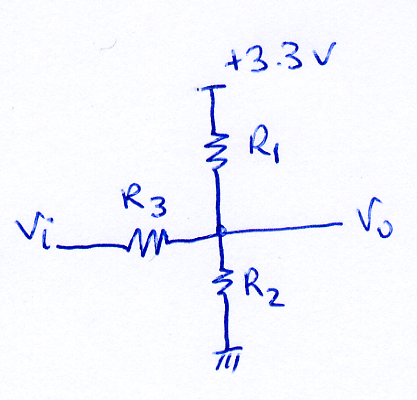 +3.3V
R1
R3
Vi
Vo
R2